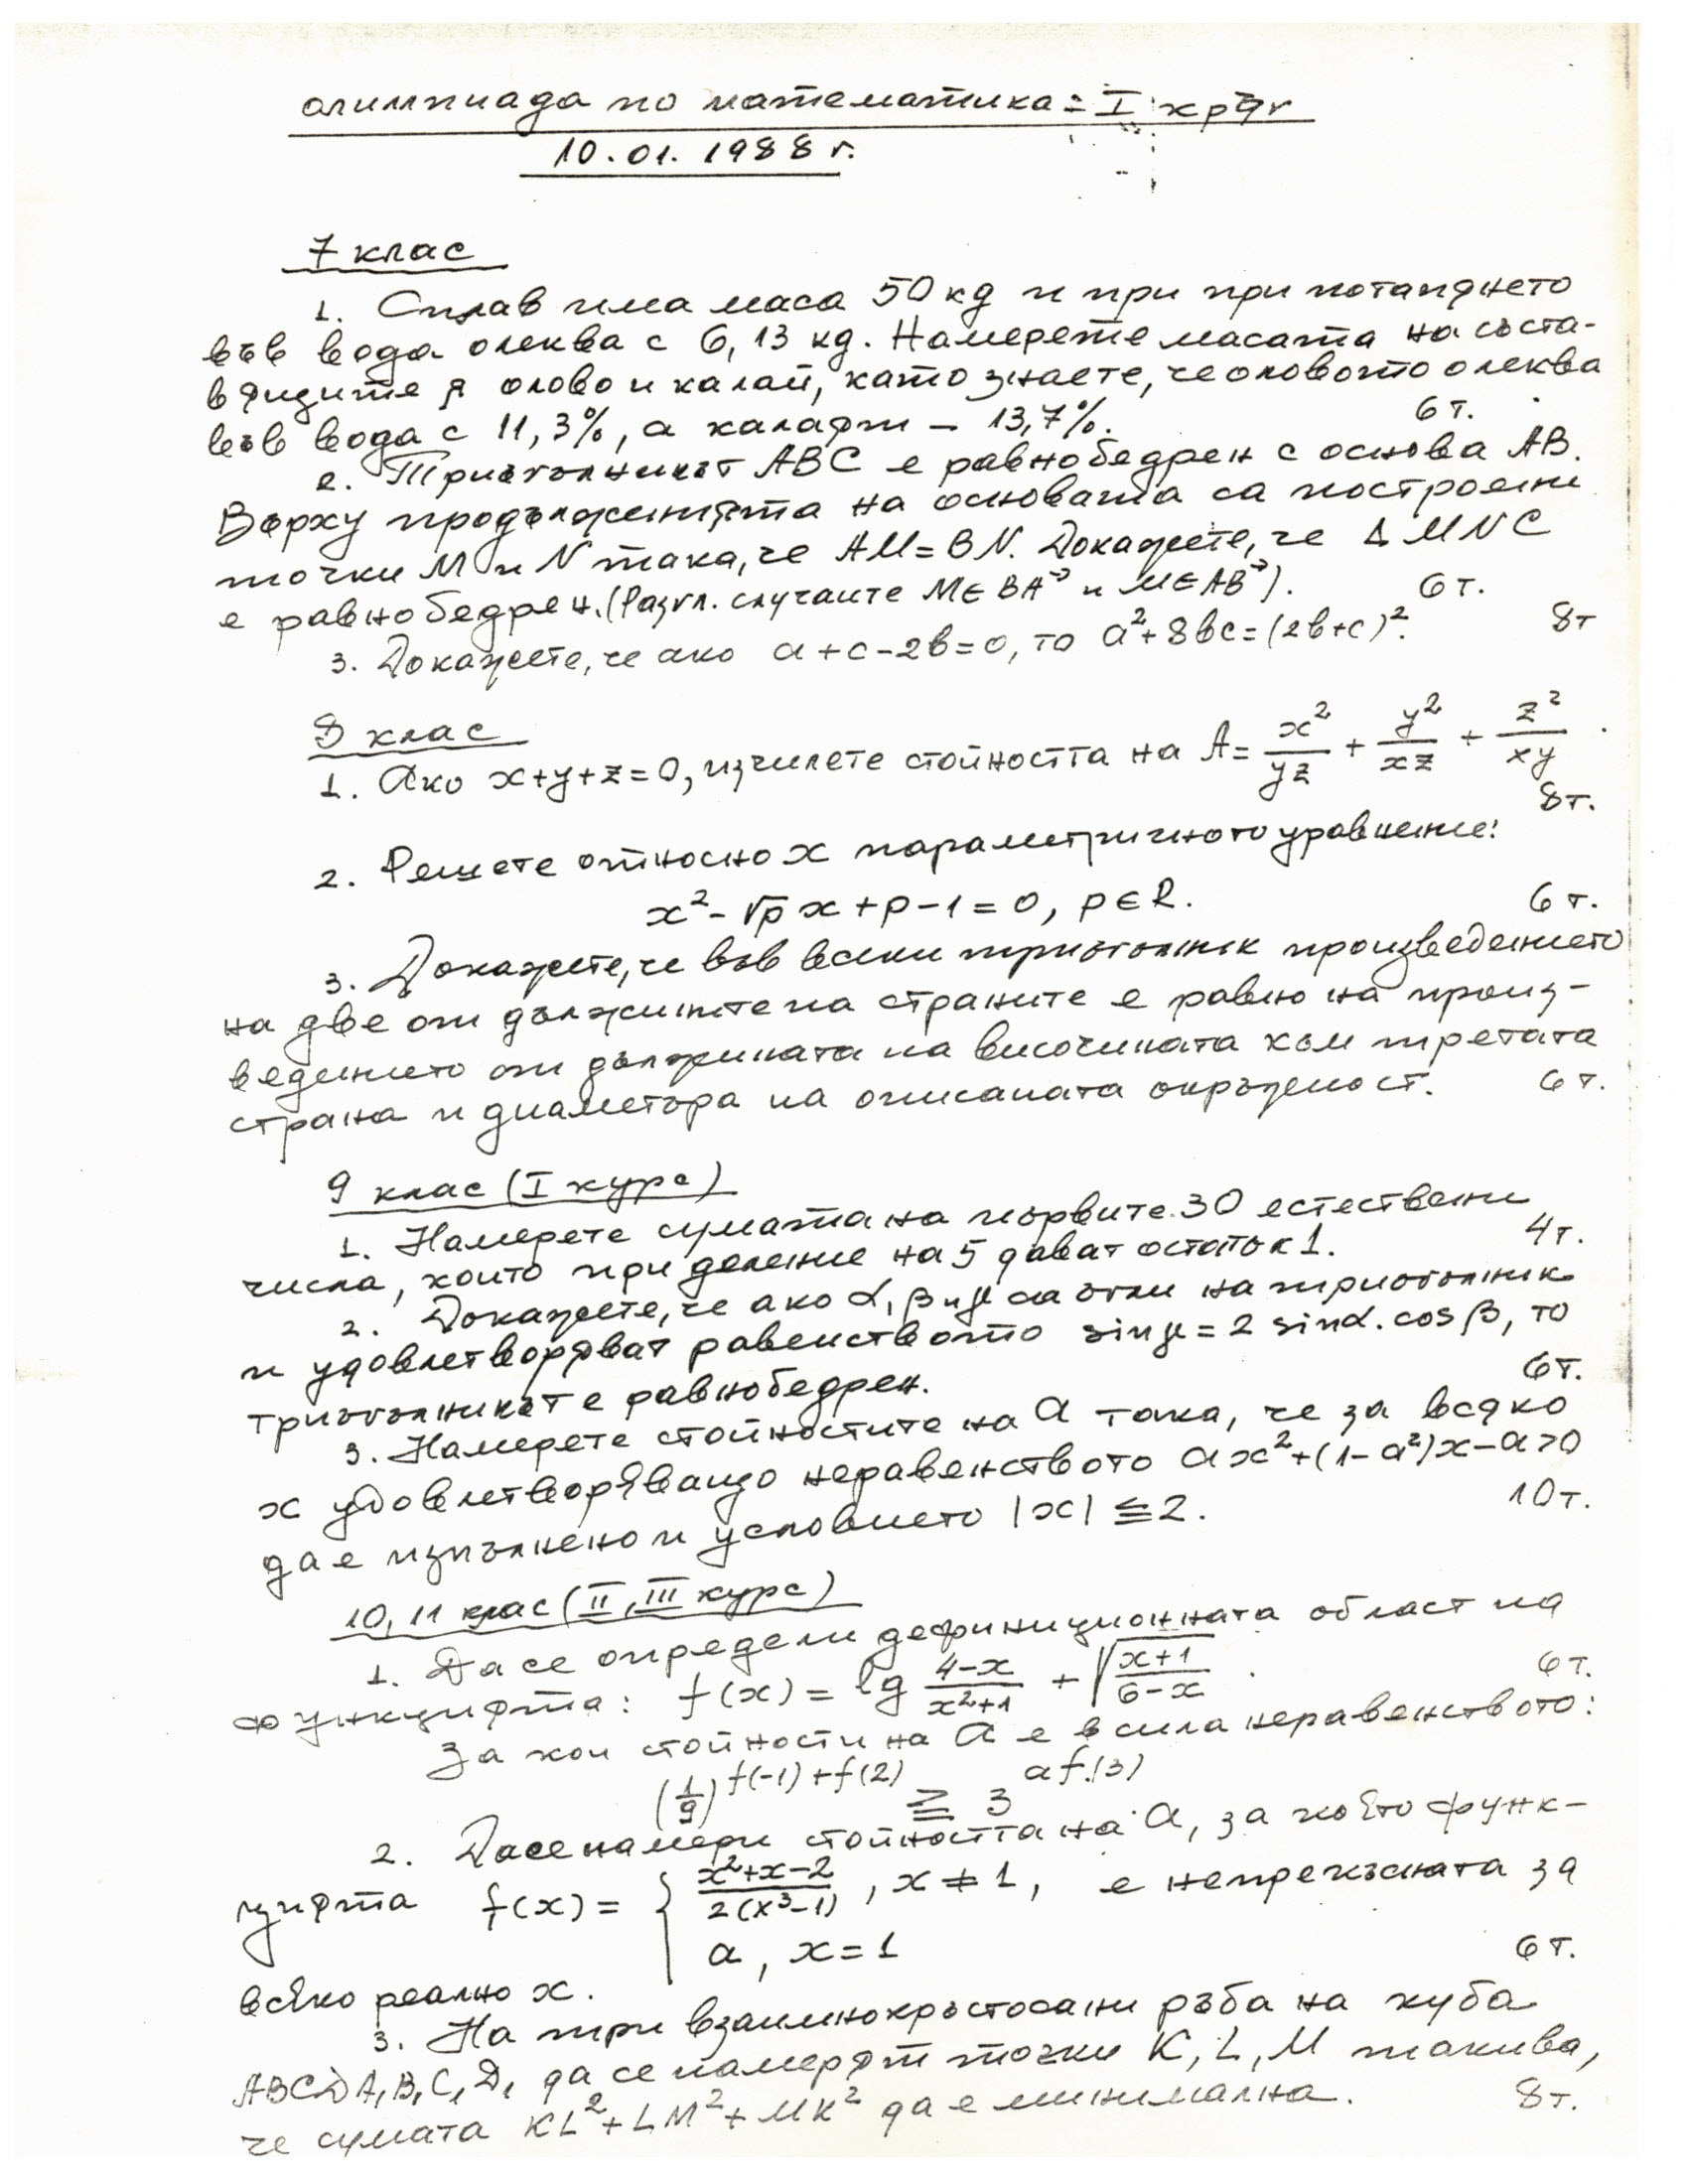 олимпиада по математика = I кръг
10.01.1988 г.
7 клас
1. Сплав има маса 50 кg и при при потапянето
във вода олеква с 6,13 кg. Намерете масата на съста-
вящите я олово и калай, като знаете, че оловото олеква
във вода с 11,3%, а калаят – 13,7%. 6 т.
2. Триъгълникът ABC е равнобедрен с основа AB.
Върху продълженията на основата са построени
точки M и N така, че AM=BN. Докажете, че Δ MNC
е равнобедрен. (Разгл. случаите M∈BA→ и M∈AB→). 6 т.
3. Докажете, че ако a+c-2b=0, то a²+8bc=(2b+c)². 8т
8 клас
1. Ако x+y+z=0, изчилете стойността на A= x²/yz + y²/xz + z²/xy .
8т.
2. Решете относно x параметричното уравнение:
x²-√p x+p-1=0, p∈R. 6 т.
3. Докажете, че във всеки триъгълник произведението
на две от дължините на страните е равно на произ-
ведението от дължината на височината към третата
страна и диаметъра на описаната окръжност. 6 т.
9 клас (I курс)
1. Намерете сумата на първите 30 естествени
числа, които при деление на 5 дават остатък 1. 4т.
2. Докажете, че ако α, β и γ са ъгли на триъгълник
и удовлетворяват равенството sin γ = 2 sin α. cos β, то
триъгълникът е равнобедрен. 6т.
3. Намерете стойностите на a така, че за всяко
x удовлетворяващо неравенството ax²+(1-a²)x-a>0
да е изпълнено и условието |x| ≦ 2. 10т.
10, 11 клас (II, III курс)
1. Да се определи дефиниционната област на
функцията: f(x) = lg (4-x)/(x²+1) + √((x+1)/(6-x)) . 6т.
За кои стойности на a е в сила неравенството:
(1/9)^(f(-1)+f(2)) ≧ 3^(af(3))
2. Да се намери стойността на a, за която функ-
цията f(x) = { (x²+x-2)/(2(x³-1)), x ≠ 1, е непрекъсната за
a, x=1 6 т.
всяко реално x.
3. На три взаимнокръстосани ръба на куба
ABCDA₁B₁C₁D₁ да се намерят точки K, L, M такива,
че сумата KL²+LM²+MK² да е минимална. 8т.